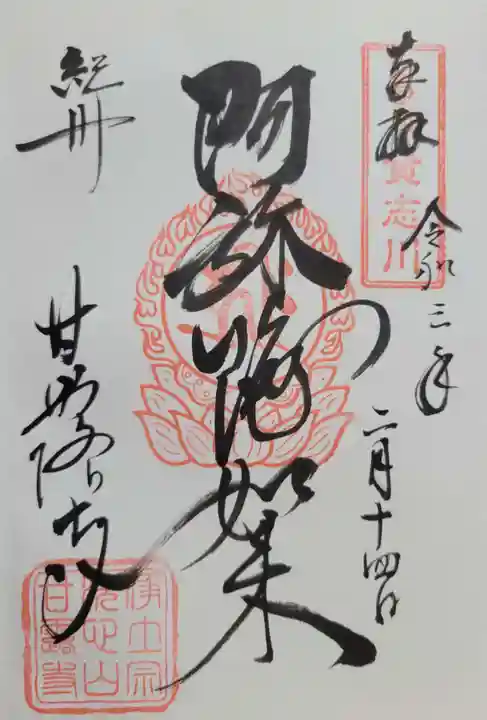 奉拝
貴志川
令和三年
二月十四日
阿弥陀如来
紀州
甘露寺
浄土宗
山
甘露寺